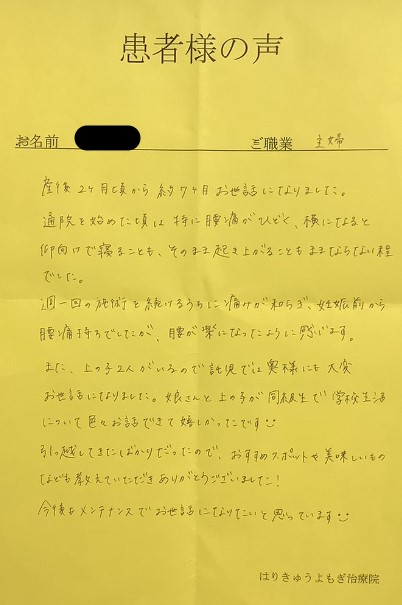 患者様の声
お名前
ご職業 主婦
産後2ヶ月頃から 約7ヶ月 お世話になりました。
通院を始めた頃は 特に腰痛がひどく、横になると
仰向けで寝ることも、そのまま起き上がることもままならない程
でした。
週一回の施術を続けるうちに痛みが和らぎ、妊娠前から
腰痛持ちでしたが、腰が楽になったように感じます。
また、上の子2人がいるので託児では奥様にも大変
お世話になりました。娘さんと上の子が同級生で学校生活
について色々お話できて嬉しかったです
引っ越してきたばかりだったので、おすすめスポットや美味しいもの
なども教えていただきありがとうございました!
今後もメンテナンスでお世話になりたいと思っています
はりきゅうよもぎ治療院